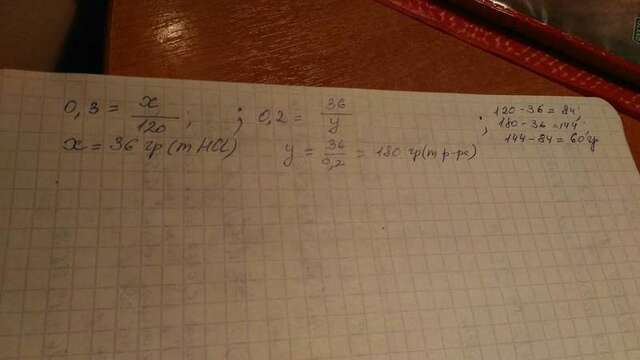 0,3 = x/120 ; ; 0,2 = 36/y
x = 36 гр (m HCl) y = 36/0,2 = 180 гр (m р-ра)
; 120 - 36 = 84
180 - 36 = 144
144 - 84 = 60 гр